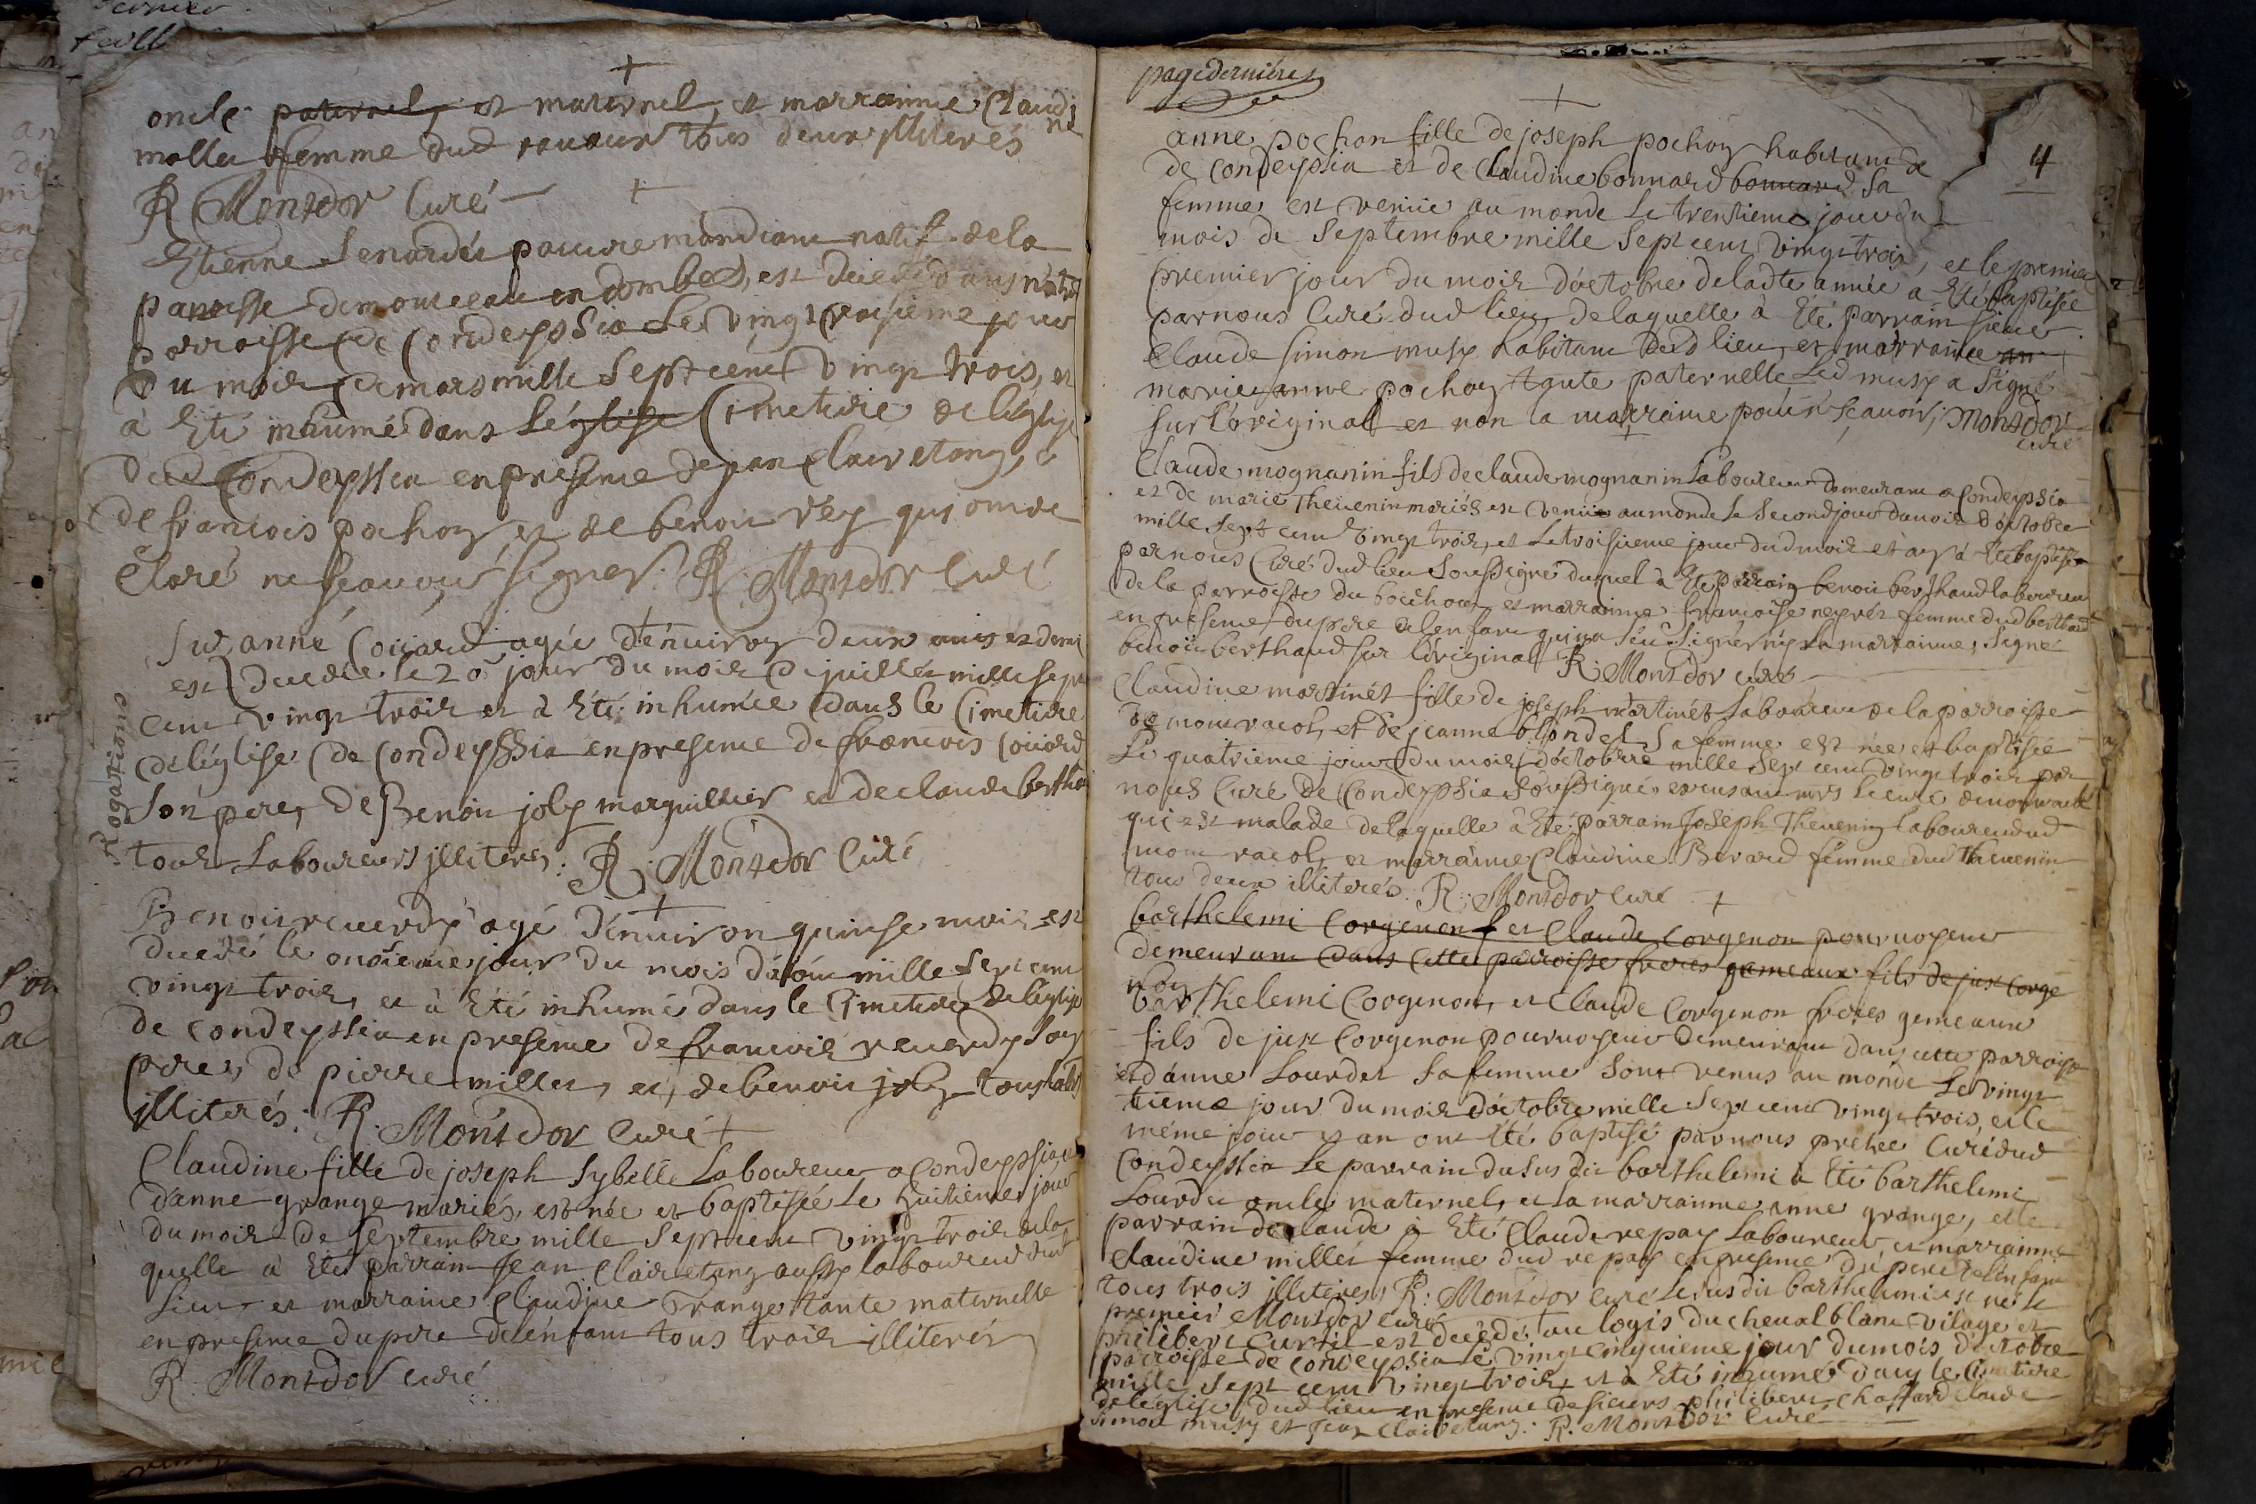 oncle paternel, et maternel, et marrainne Claudine
mollet femme dud reueur tous deux illiterés
R Montdor Curé
Etienne Senardet pauure mandiant natif de la
paroisse de monceau en dombes, est decedé dans nôtre
parroisse de Condeyssia le vingt troisieme jour
du mois de mars mille sept cent vingt trois, et
à Eté inhumé dans l'église Cimetiere de l'église
dud Condeyssia en presence de jean Clairetang, &
de francois pochon, et de benoit rey qui ont de
claré ne scauoir signer. R. Montdor Curé
Suzanné Coüard agée d'énuiron deux ans et demi
est decedée le 20e jour du mois de juillet mille sept
cent vingt trois et à Eté inhumée dans le Cimetiere
de l'église de Condeyssia en presence de francois Coüard
Son pere, de Benoit joly marguillier et de claude berthet
tous Laboureurs illiteres. R. Montdor Curé
Rogations
Benoit reuerdy agé d'énuiron quinse mois est
decedé le onsieme jour du mois d'aout mille sept cent
vingt trois, et à Eté inhumé dans le Cimetiere de l'église
de condeyssia en presence de francois reuerdy son
pere, de pierre millet, et de benoit joly tous
illiterés. R. Montdor Curé
Claudine fille de joseph Sybelle Laboureur a Condeyssia et
d'anne grange mariés, est née et baptisée Le huitieme jour
du mois de Septembre mille Sept cent vingt trois de la
quelle à Eté parrain Jean Clairetang aussy laboureur dud
Lieu et marraine Claudine Grange tante maternelle
en presence du pere de l'énfant tous trois illiterés
R. Montdor curé
page dernière
4
anne pochon fille de joseph pochon habitant de
de condeyssia et de Claudine bonnard bonnard Sa
femme est venüe au monde Le trentieme jour du
mois de Septembre mille Sept cent vingt trois, et le premier
premier jour du mois d'octobre de ladte année a Eté baptisée
par nous Curé dud lieu de laquelle à Eté parrain sieur
Claude simon musy habitant dud lieu, et marrainne an
marie anne pochon tante paternelle Led musy a signé
sur l'original et non la marraine pour ne sçauoir, Montdor
curé
Claude mognanin fils de claude mognanin Laboureur demeurant a Condeyssia
et de marie Theuenin mariés est venu au monde Le Second jour du mois d'octobre
mille sept cent vingt trois, et Le troisieme jour dud mois et an à Eté baptisé
par nous Curé dud lieu Soussigné duquel à Eté parrain benoit berthaud laboureur
de la parroisse du bouchoux et marrainne francoise neyret femme dud berthaud
en presence du pere de l'enfant qui n'a sceu signer ny la marrainne, signé
benoit berthaud sur l'original R. Montdor curé
Claudine martinet fille de joseph martinet Laboureur de la parroisse
de montracol, et de jeanne blondel Sa femme est née et baptisée
Le quatrieme jour du mois d'octobre mille sept cent vingt trois par
nous Curé de Condeyssia Soussigné, excusant mrs Le curé de montracol
qui est malade de laquelle à Eté parrain Joseph Theuenin laboureur dud
montracol, et marrainne Claudine Berard femme dud Theuenin
tous deux illiterés. R. Montdor Curé
barthelemi Corgenon f et Claude Corgenon pouruoyeur
demeurant dans cette parroisse freres gemeaux fils de just Corge
non
barthelemi Corgenon, et Claude Corgenon freres gemeaux
fils de just Corgenon pouruoyeur demeurant dans cette parroisse
et d'anne Lourdet Sa femme Sont venus au monde Le vingt
tieme jour du mois d'octobre mille sept cent vingt trois, et le
même jour et an ont été baptisé par nous prêtre Curé dud
Condeyssia Le parrain du Susdit barthelemi à Eté barthelemi
Lourdet oncle maternel, et la marrainne anne grange, et le
parrain de Claude à Eté Claude repay Laboureur, et marrainne
Claudine millet femme dud repay en presence du pere de l'énfant
tous trois illiteres R. Montdor Curé Le susdit barthelemi est né le
premier Montdor curé
philibert Curtil est decedé au logis du cheual blanc vilage et
parroisse de condeyssia le vingt cinquieme jour du mois d'octobre
mille sept cent vingt trois, et à Eté inhumé dans le Cimetiere
de l'église dud lieu en presence de sieurs philibert chaffard Claude
Simon musy et Jean Clairetang. R. Montdor Curé